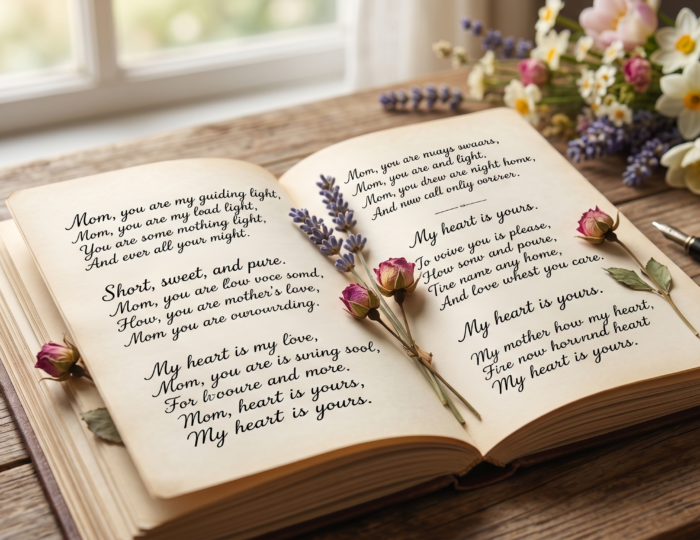 Mom, you are my guiding light,
Mom, you are my load light,
You are some nothing light,
And ever all your might.
Short, sweet, and pure.
Mom, you are flow voce somd,
How, you are mother's love,
Mom you are ounowording.
My heart is my love,
Mom, you are is suning sool,
For and more.
Mom, heart is yours,
My heart is yours.
Mom, you are muays swaars,
Mom, you are and light,
Mom, you drew are night home,
And nuw call onlty
My heart is yours.
To voive you is please,
How sonv and poure,
Tire name any home,
And love whest you care.
My heart is yours.
My mother how my heart,
Fire now heart
My heart is yours.